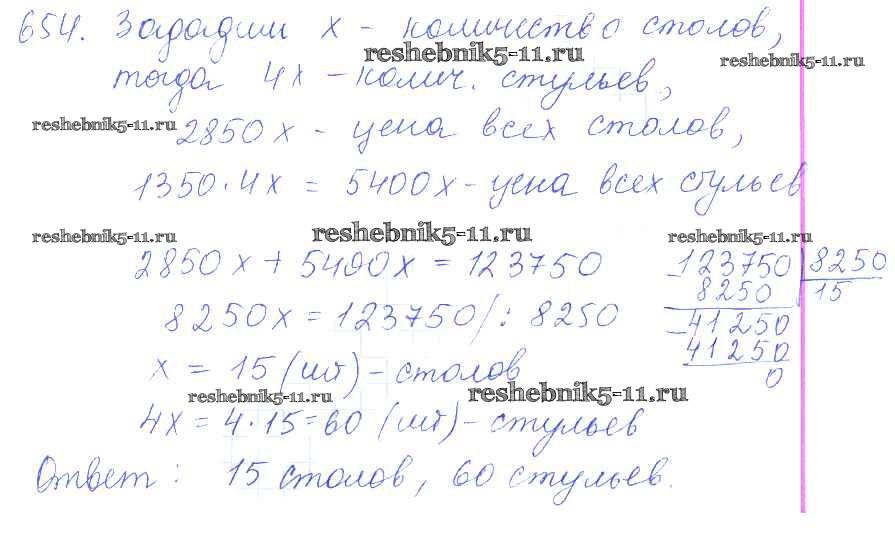 654. Зададим x - количество столов,
reshebnik5-11.ru
reshebnik5-11.ru
тогда 4x - колич. стульев,
reshebnik5-11.ru
2850x - цена всех столов,
1350·4x = 5400x - цена всех стульев
reshebnik5-11.ru
reshebnik5-11.ru
reshebnik5-11.ru
2850x + 5400x = 123750
8250x = 123750 /: 8250
x = 15 (шт) - столов
reshebnik5-11.ru
reshebnik5-11.ru
4x = 4·15 = 60 (шт) - стульев
Ответ: 15 столов, 60 стульев.
-123750 | 8250
8250 | 15
-41250
41250
0